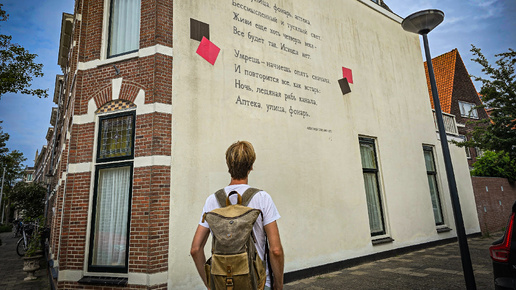 улица, фонарь, аптека,
Бессмысленный и тусклый свет.
Живи ещё хоть четверть века -
Всё будет так. Исхода нет.
Умрёшь - начнёшь опять сначала,
И повторится всё, как встарь:
Ночь, ледяная рябь канала,
Аптека, улица, фонарь.